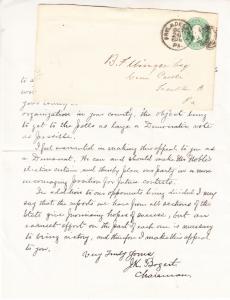 PHILADELPHIA
PA.
B. F.
Esq
to
organization in your county. The object being
to get to the polls as large a Democratic vote
as possible.
I feel warranted in making this appeal to you as
a Democrat. We can and should make
election certain and thereby place our party on a more
encouraging position for future contests.
In addition to our opponents being divided I may
say that the reports we have from all sections of the
State give promising hopes of success, but an
earnest effort on the part of each one is necessary
to bring victory, and therefore I make this appeal
to you.
Very Truly Yours
J.K. Bogert
Chairman.